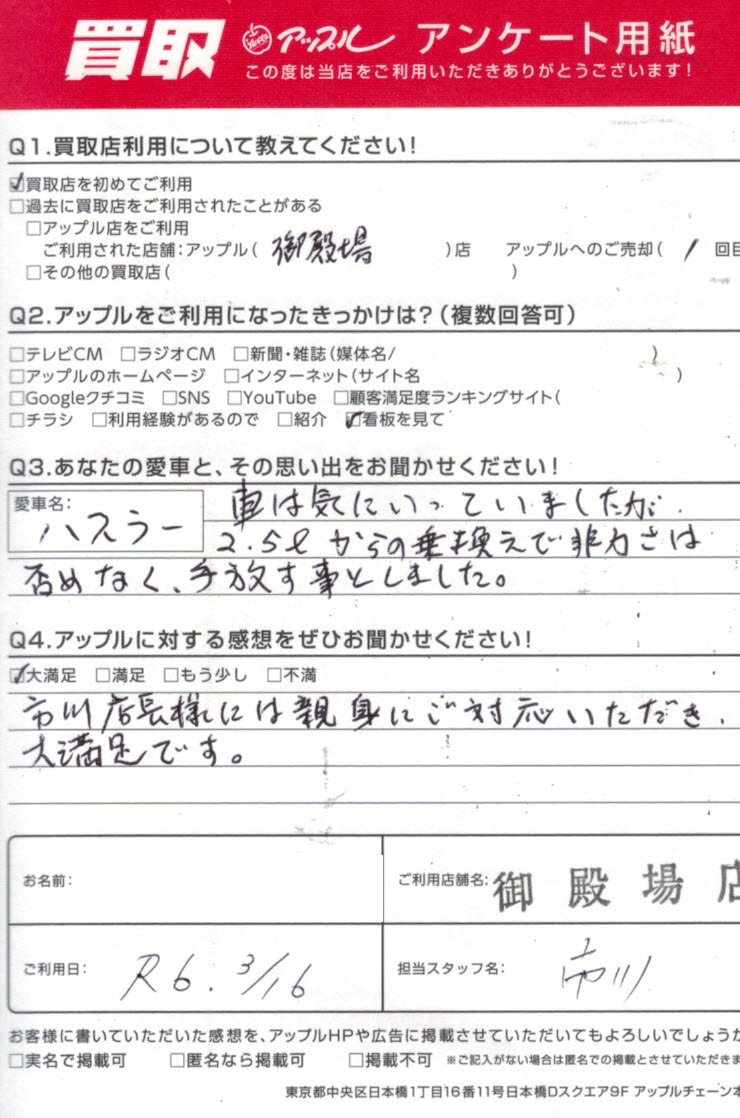 買取 アップル アンケート用紙
この度は当店をご利用いただきありがとうございます!
Q1.買取店利用について教えてください!
☑買取店を初めてご利用
□過去に買取店をご利用されたことがある
□アップル店をご利用
ご利用された店舗:アップル( 御殿場 )店 アップルへのご売却( 1 回目
□その他の買取店( )
Q2.アップルをご利用になったきっかけは?(複数回答可)
□テレビCM □ラジオCM □新聞・雑誌(媒体名/ )
□アップルのホームページ □インターネット(サイト名 )
□Googleクチコミ □SNS □YouTube □顧客満足度ランキングサイト(
□チラシ □利用経験があるので □紹介 ☑看板を見て
Q3.あなたの愛車と、その思い出をお聞かせください!
愛車名:
ハスラー
車は気にいっていましたが、
2.5ℓからの乗換えで非力さは
否めなく、手放す事としました。
Q4.アップルに対する感想をぜひお聞かせください!
☑大満足 □満足 □もう少し □不満
市川店長様には親身にご対応いただき、
大満足です。
お名前:
ご利用店舗名: 御殿場店
ご利用日: R6. 3/16
担当スタッフ名: 市川
お客様に書いていただいた感想を、アップルHPや広告に掲載させていただいてもよろしいでしょうか
□実名で掲載可 □匿名なら掲載可 □掲載不可 ※ご記入がない場合は匿名での掲載とさせていただきま
東京都中央区日本橋1丁目16番11号日本橋Dスクエア9F アップルチェーン本